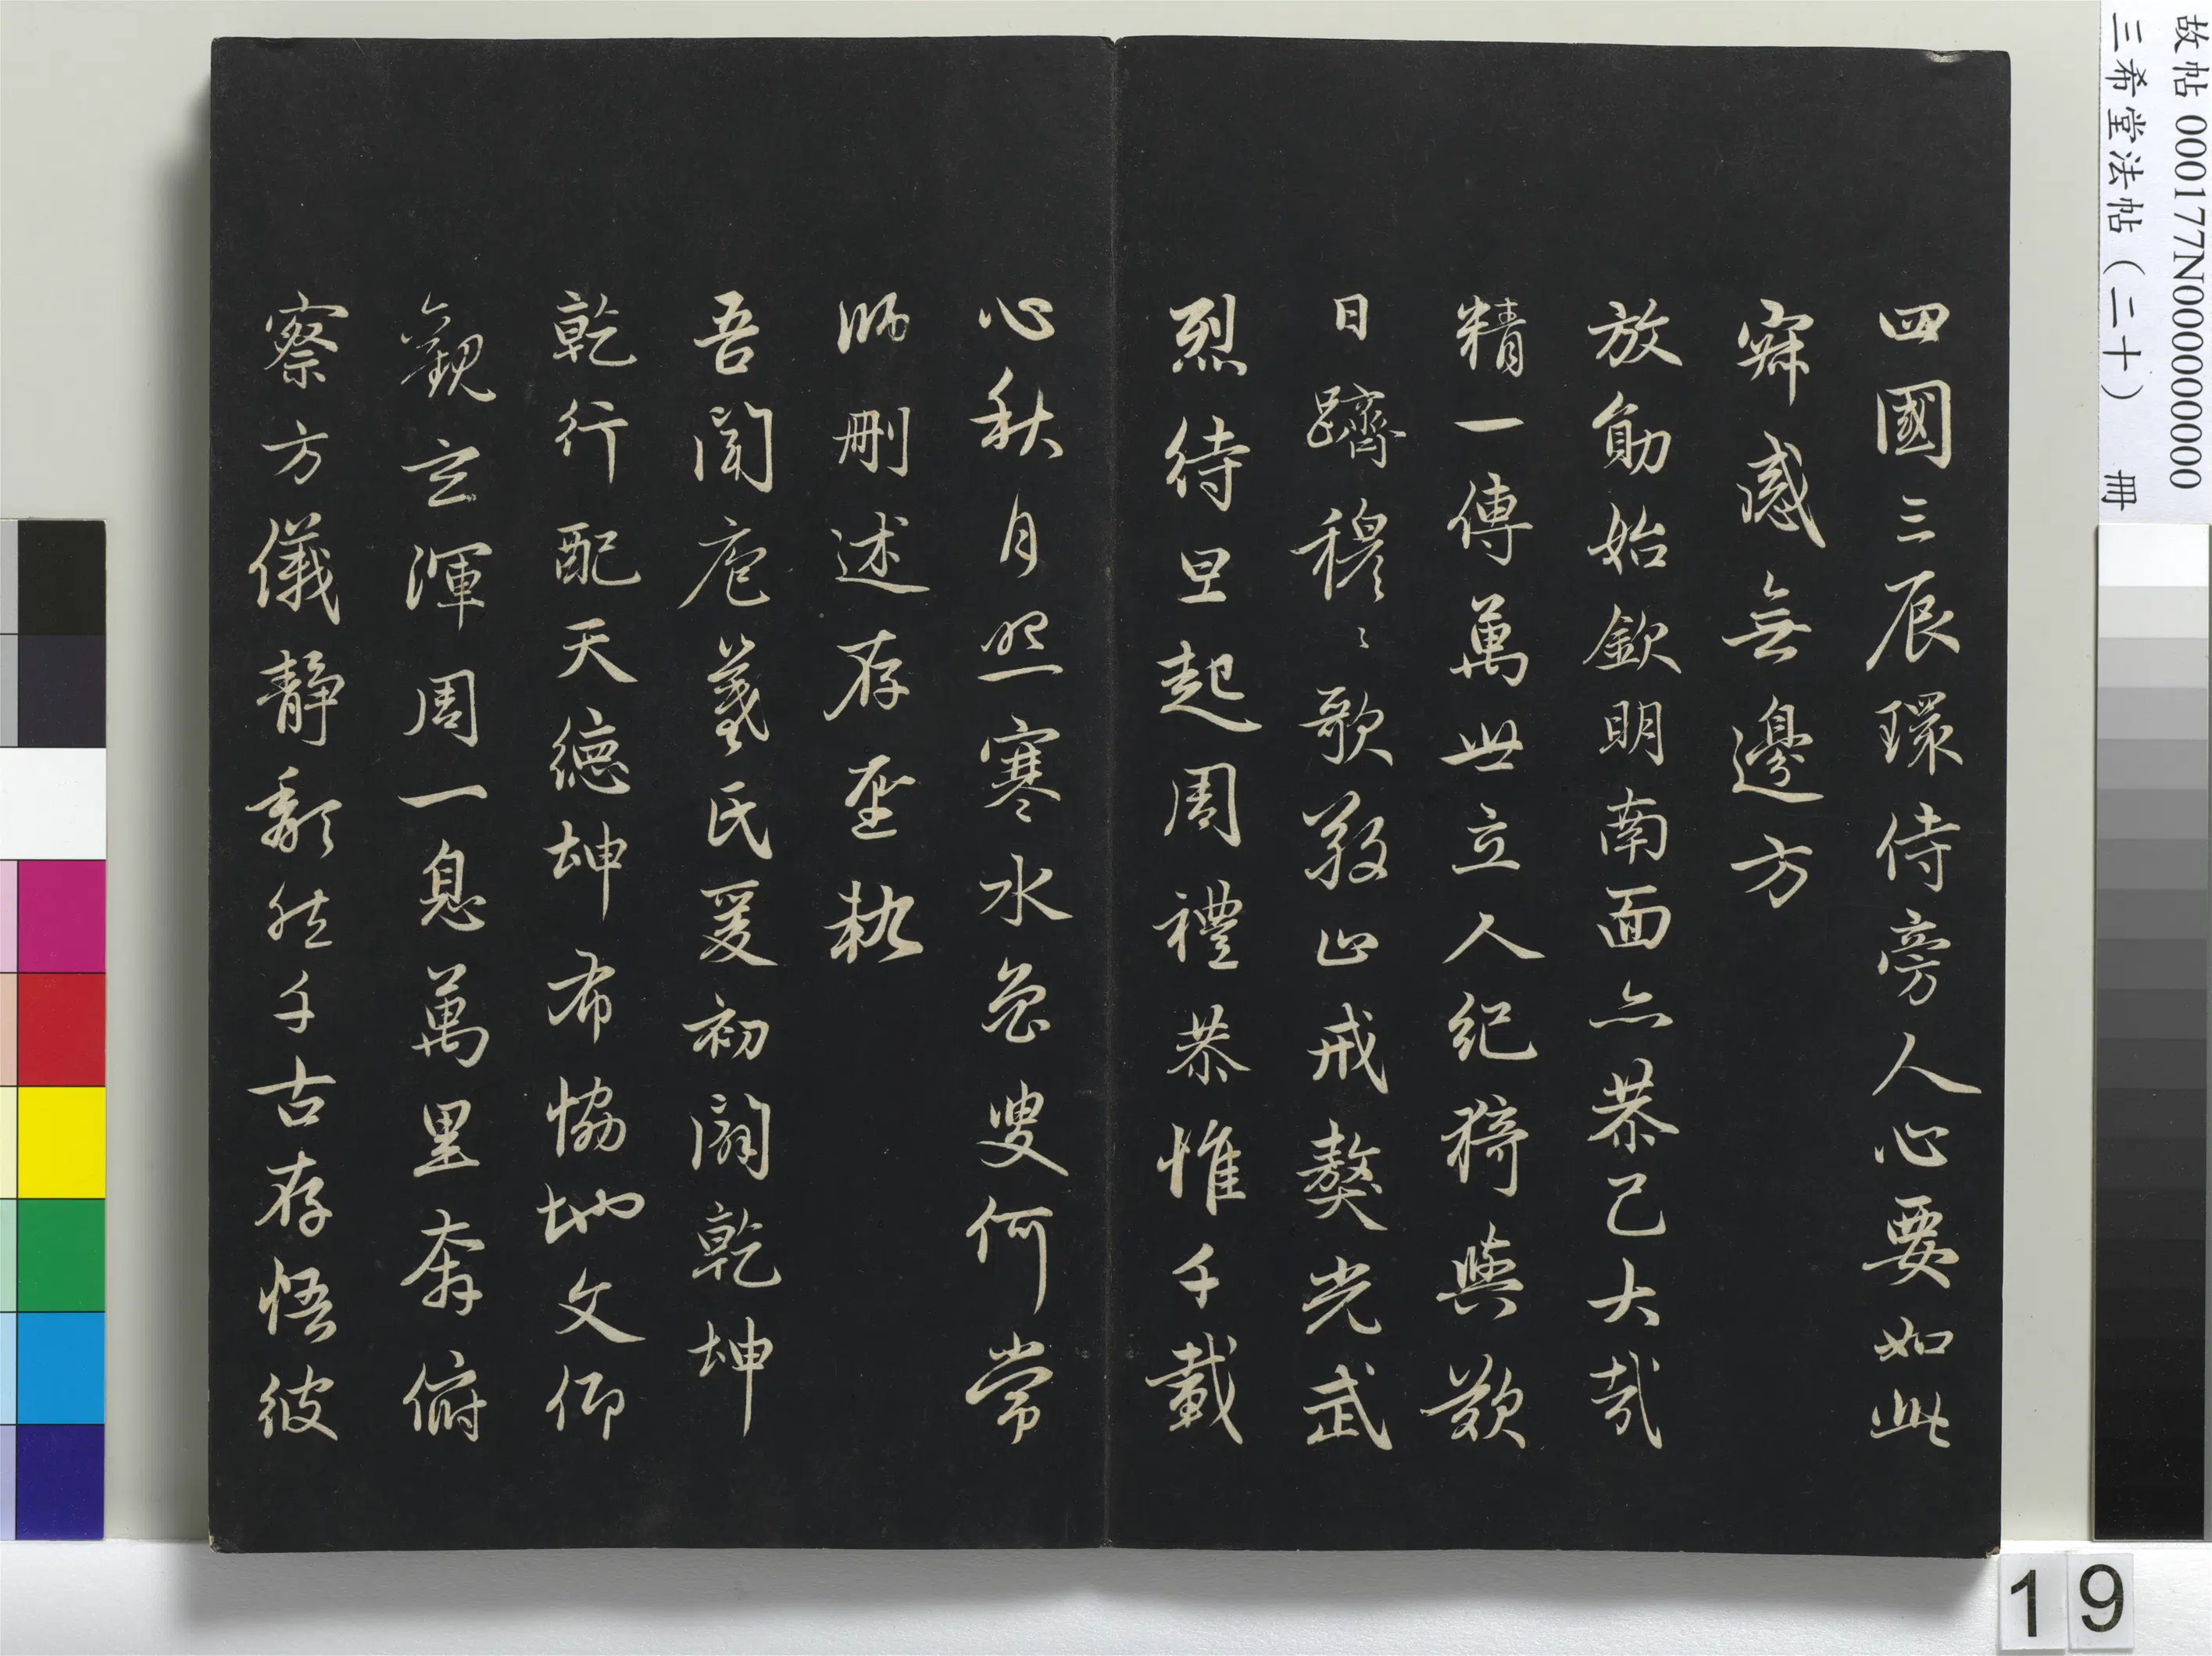 四國三辰環侍旁人心要如此
寂感無邊方
放勛始欽明南面亦恭己大哉
精一傳萬世立人紀猗與歎
日躋穆〻歌敬止戒獒光武
烈待旦起周禮恭惟千載
心秋月照寒水魯叟何常
師刪述存聖軌
吾聞庖羲氏爰初闢乾坤
乾行配天德坤布協地文仰
觀玄渾周一息萬里奔俯
察方儀靜頹然千古存悟彼
故帖 000177N000000000
三希堂法帖（二十） 冊
19